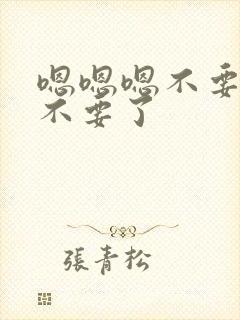 嗯嗯嗯不要
不要了
張青松